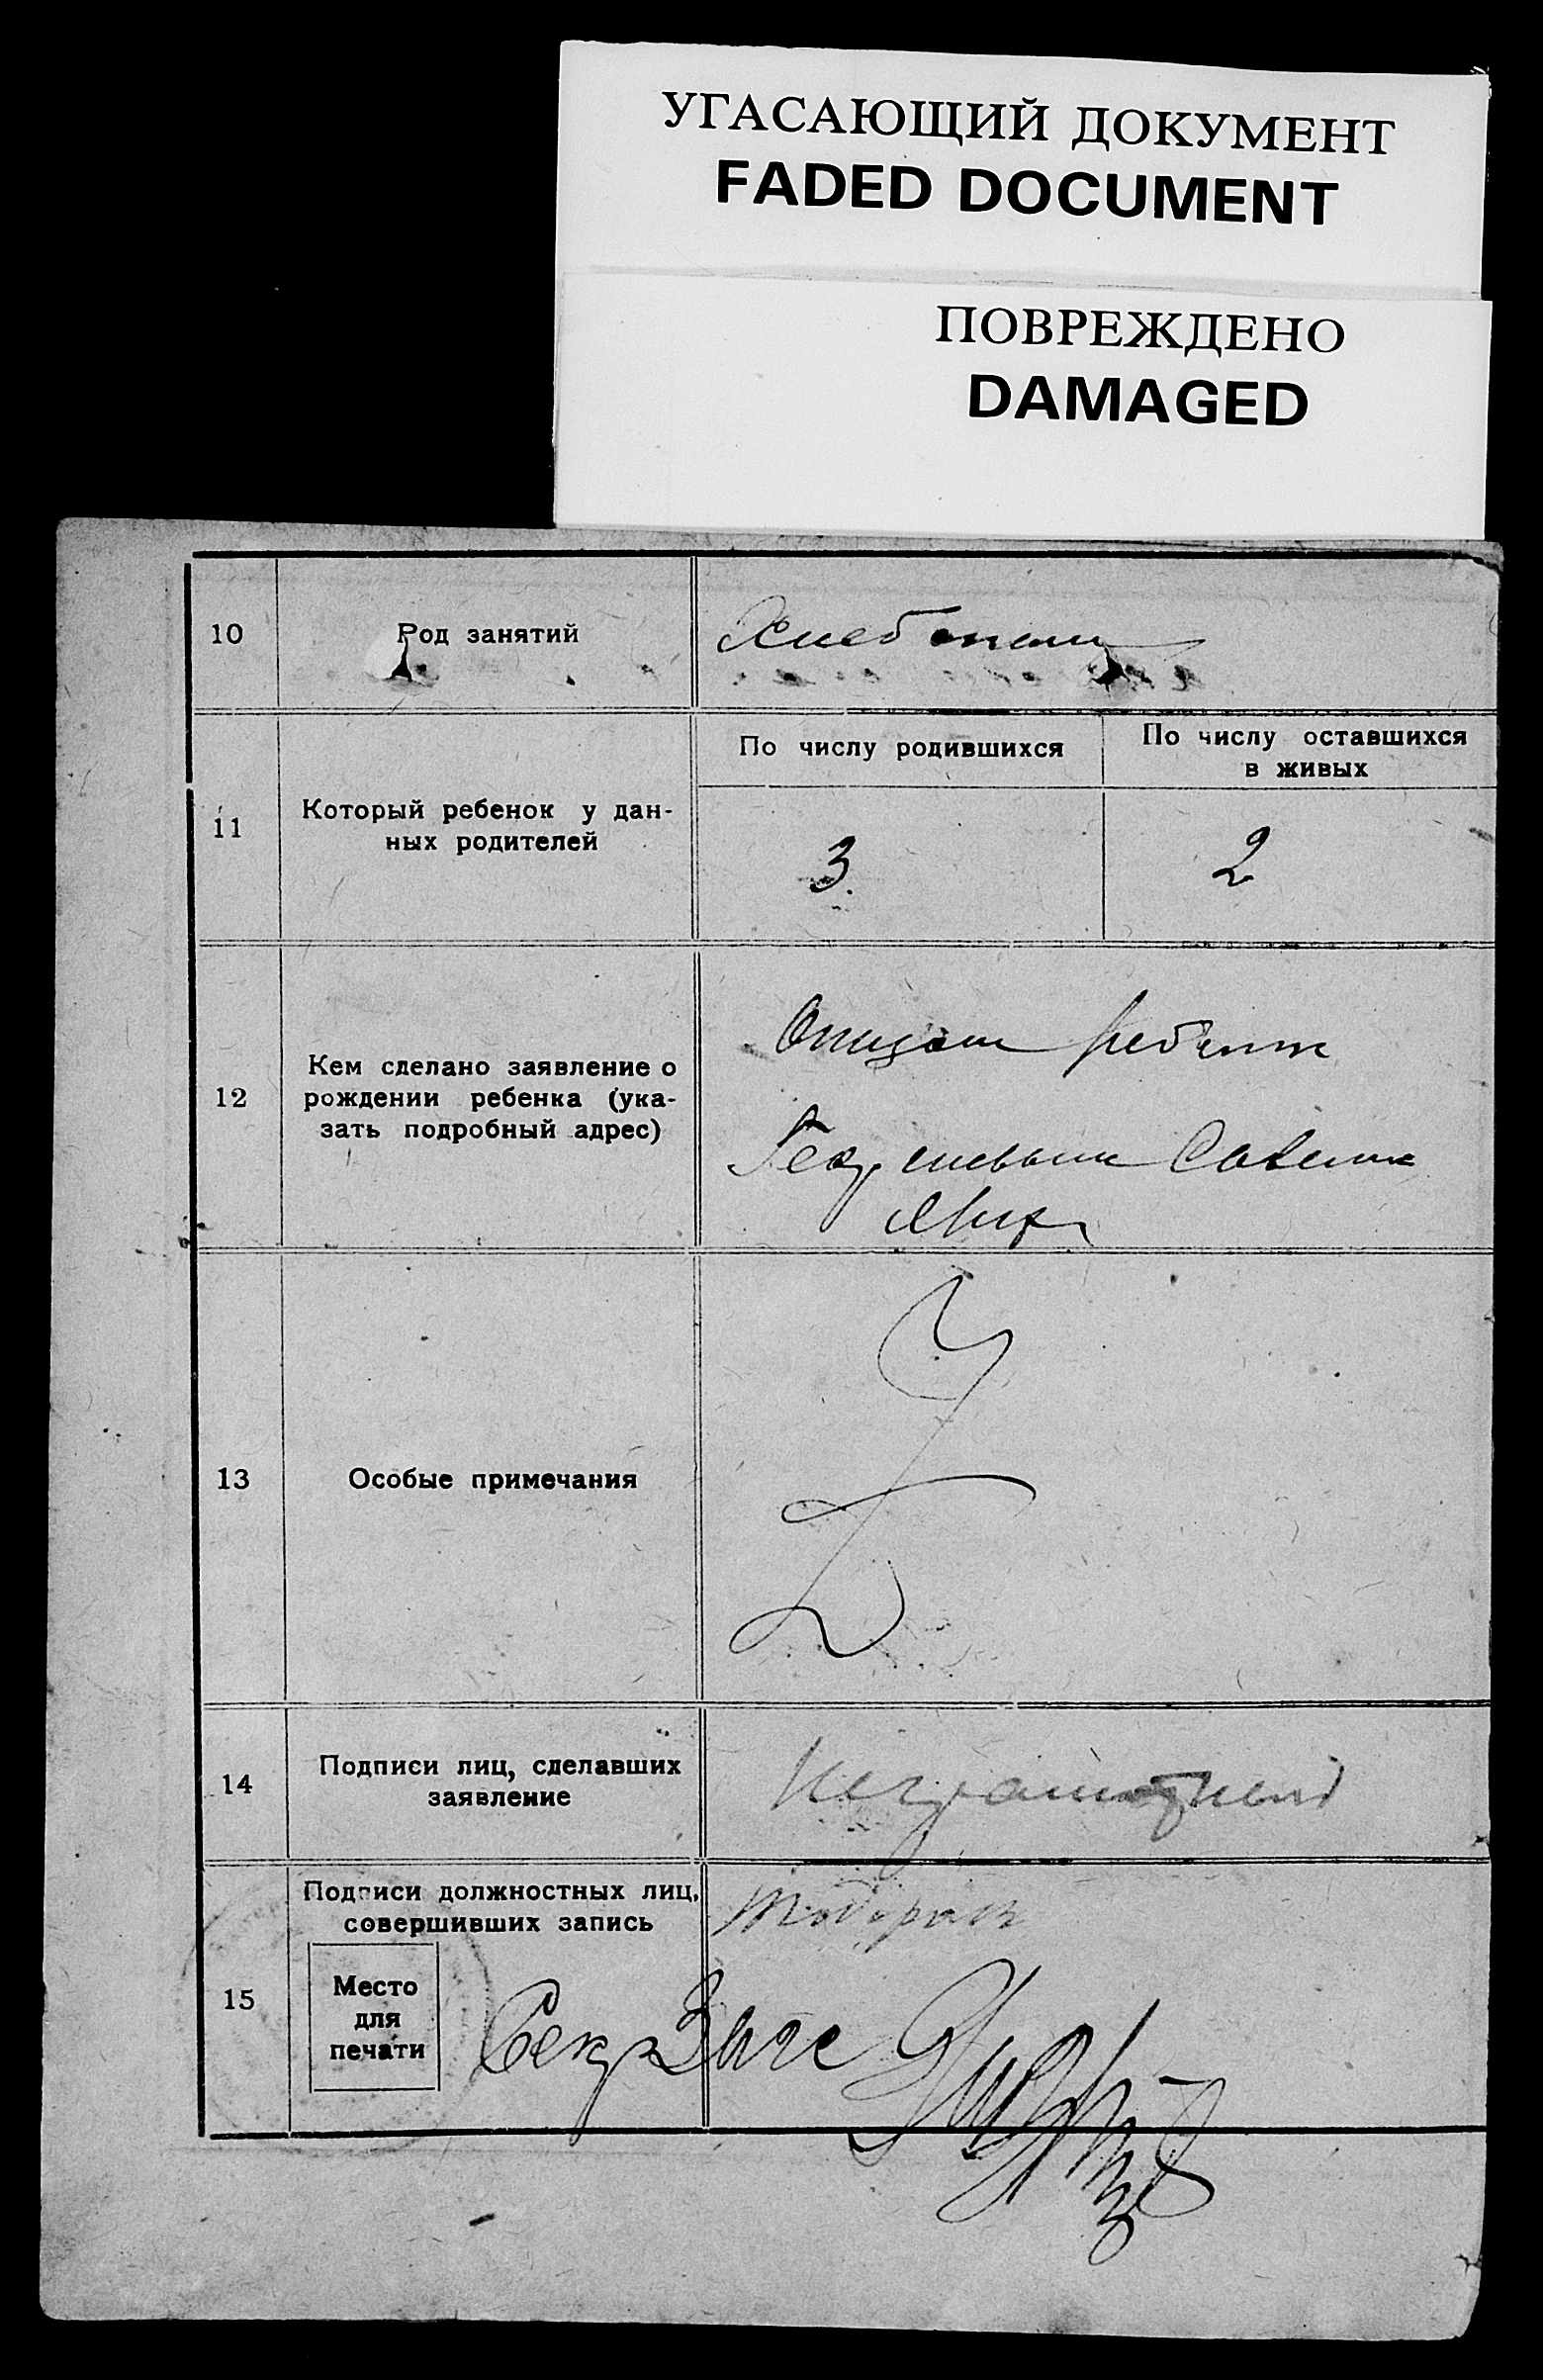 УГАСАЮЩИЙ ДОКУМЕНТ
FADED DOCUMENT
ПОВРЕЖДЕНО
DAMAGED
10
Род занятий
11
Который ребенок у дан-
ных родителей
По числу родившихся
По числу оставшихся
в живых
3
2
12
Кем сделано заявление о
рождении ребенка (ука-
зать подробный адрес)
ребенка
13
Особые примечания
14
Подписи лиц, сделавших
заявление
Неграмотный
15
Подписи должностных лиц,
совершивших запись
Место
для
печати
Секр Загс